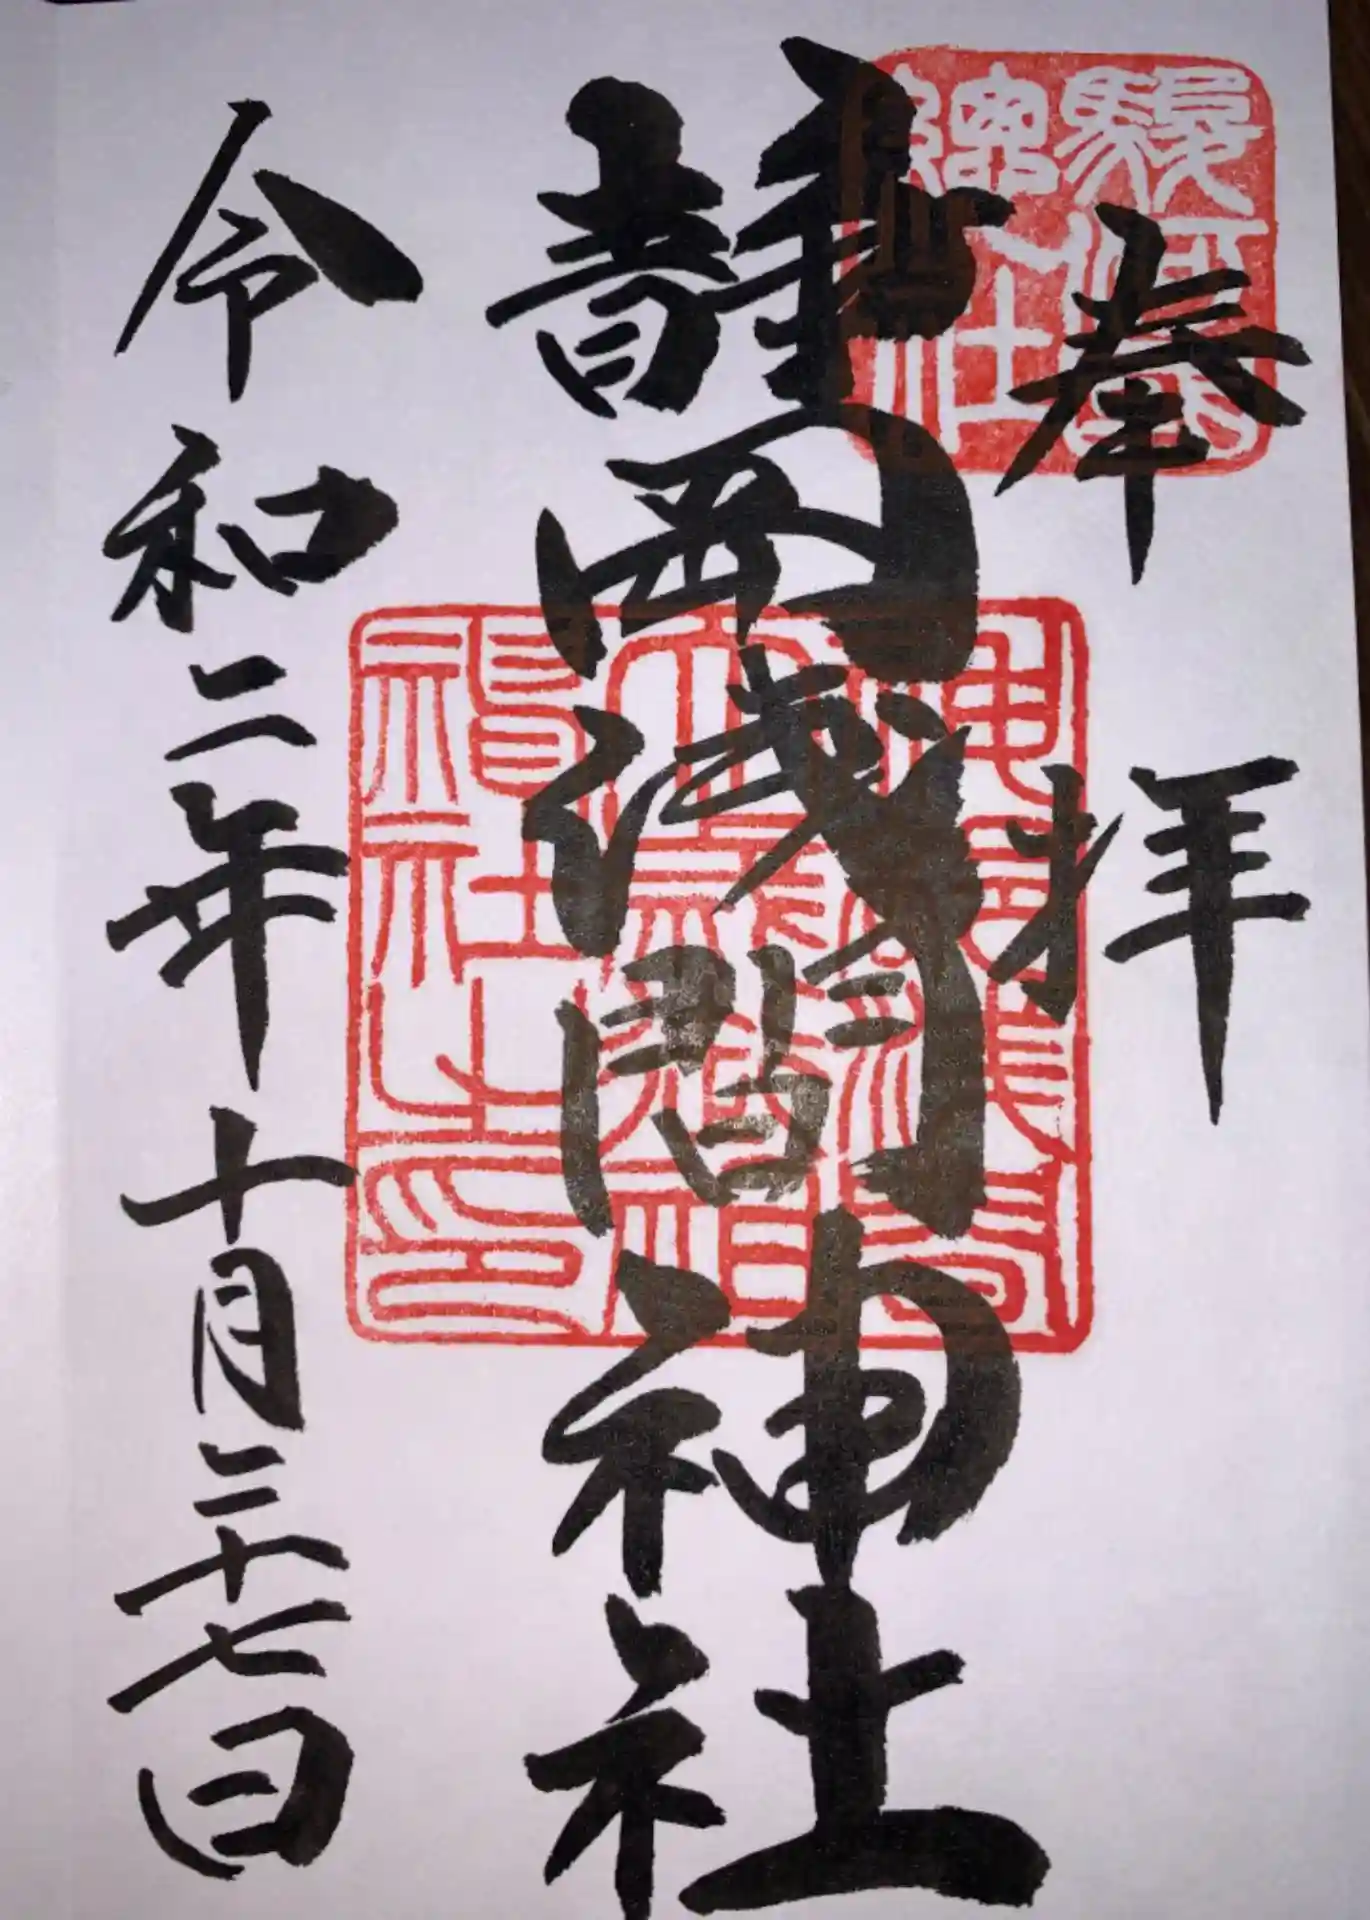 奉拝
駿河國総社
靜岡浅間神社
神部浅間大歳御祖神社之印
令和二年十月二十七日